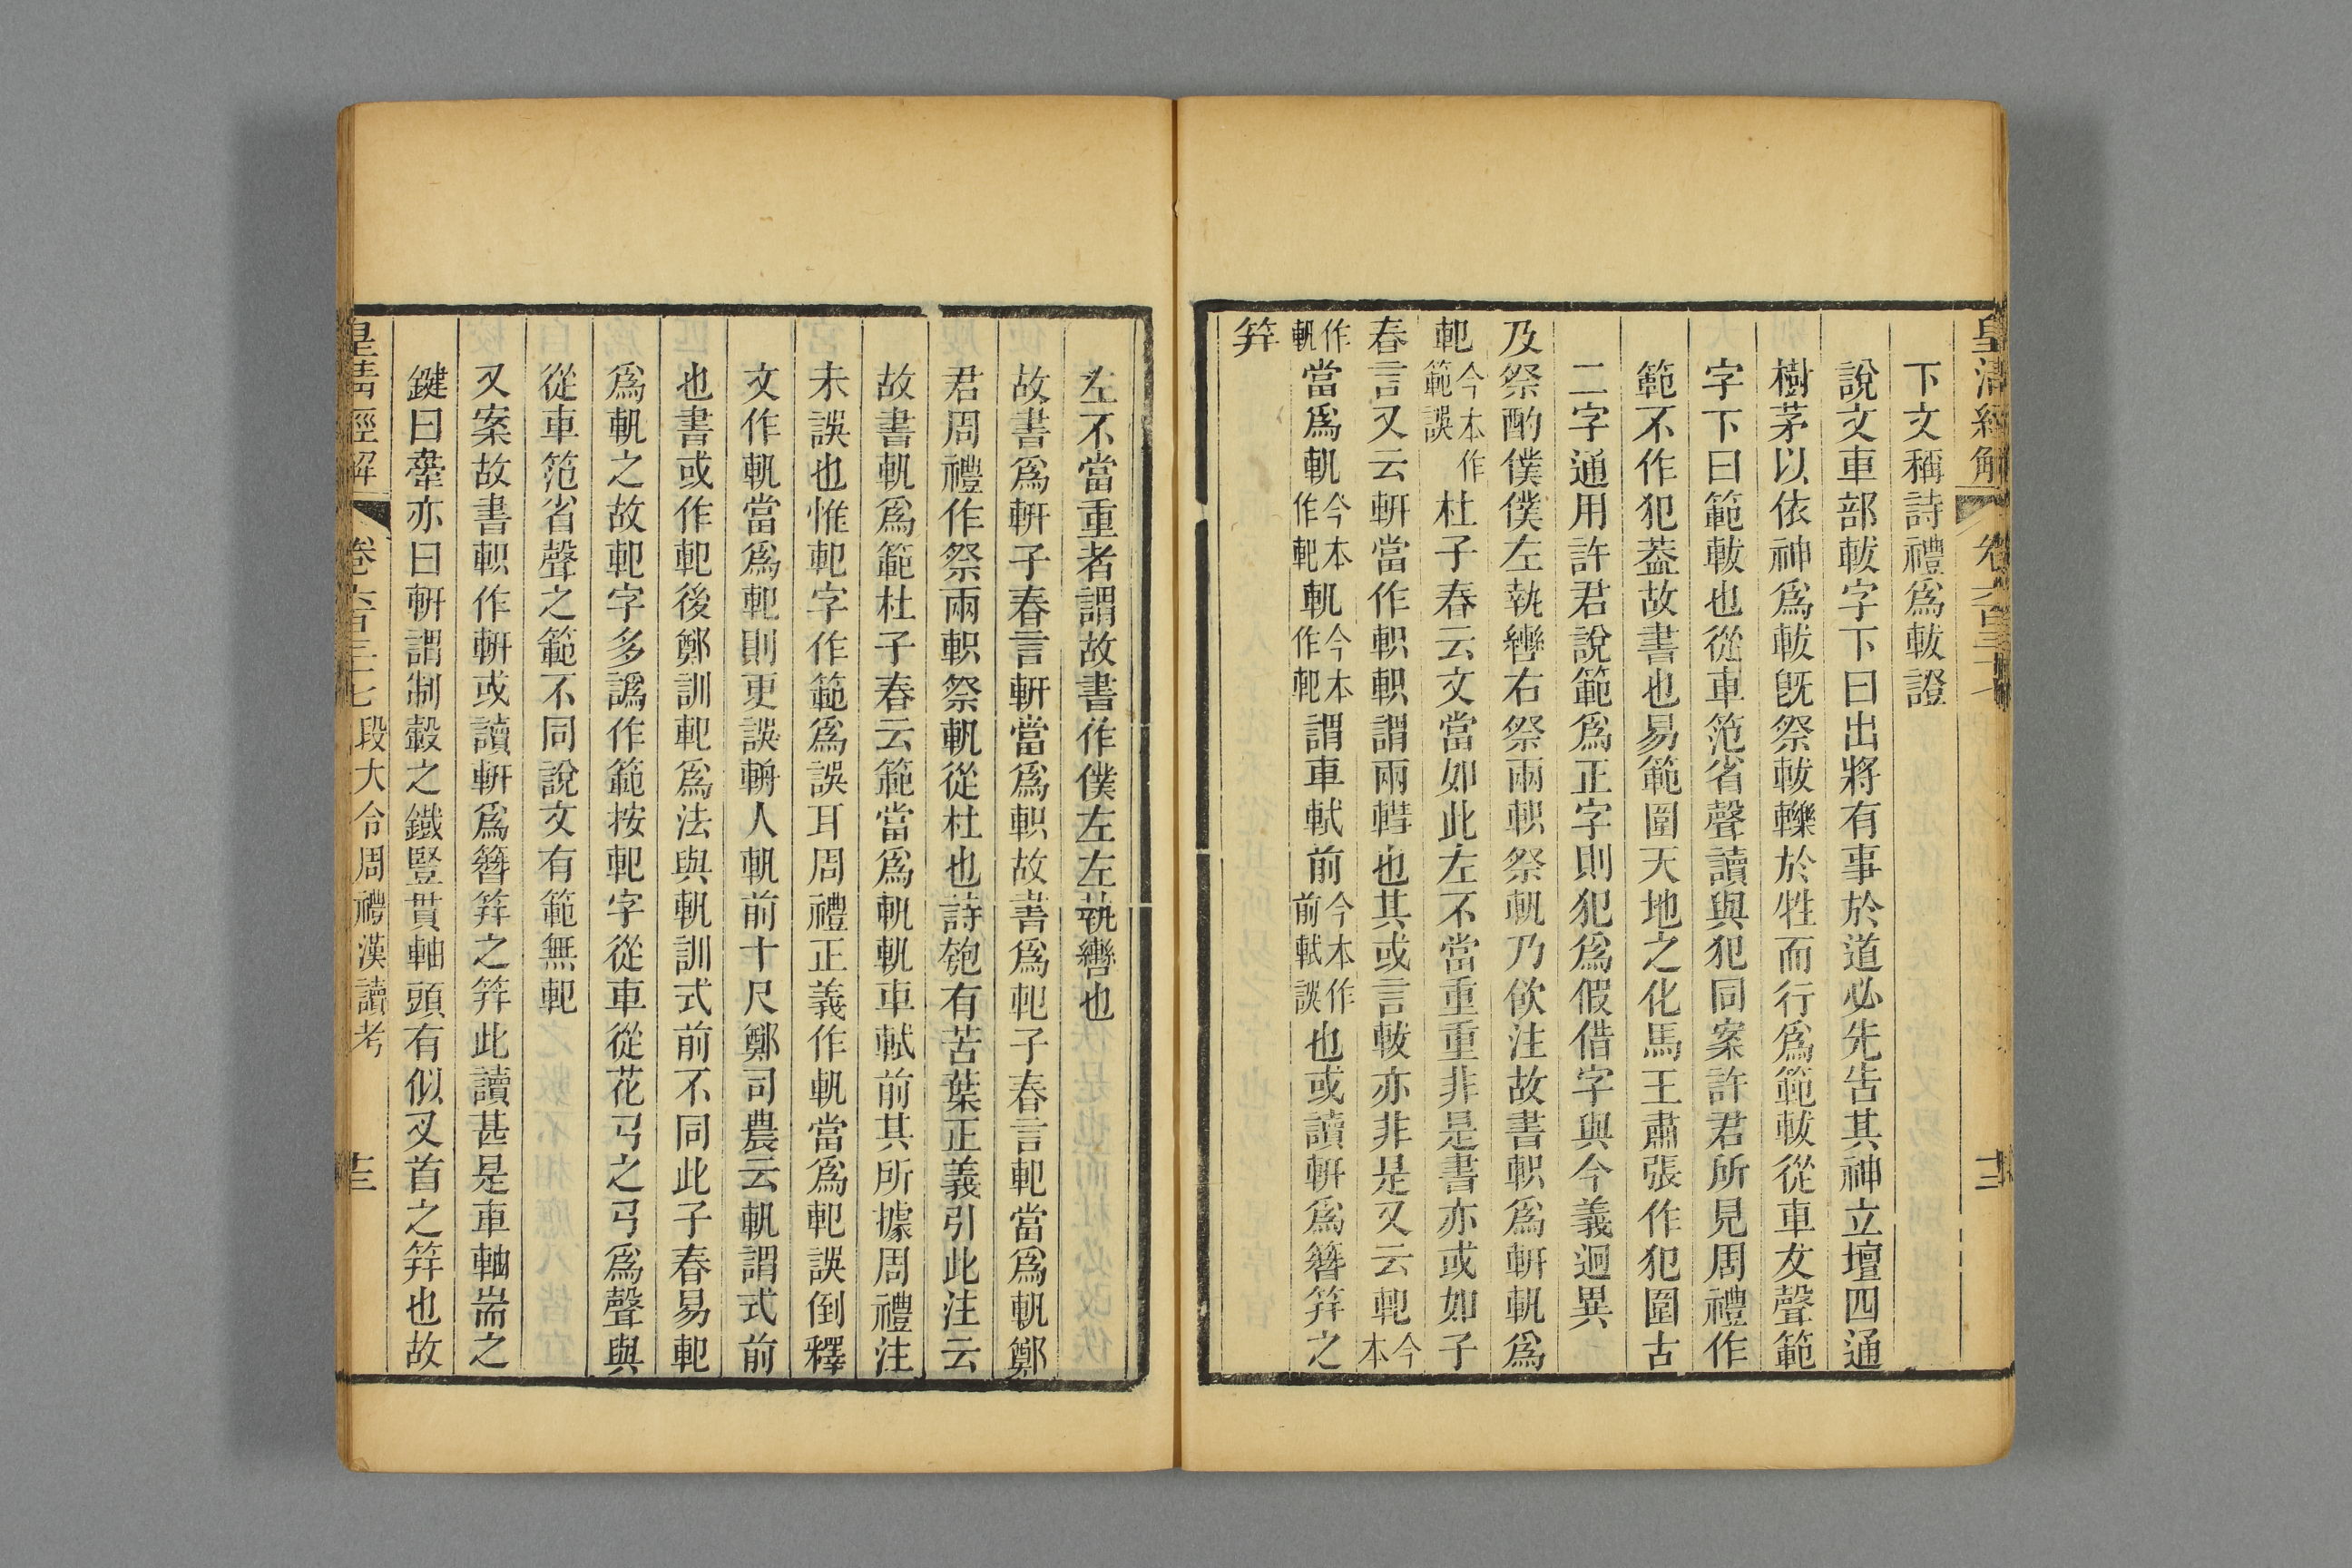 皇清經解 卷六百三十七 十二
下文稱詩禮爲軷證
說文車部軷字下曰出將有事於道必先告其神立壇四通
樹茅以依神爲軷旣祭軷轢於牲而行爲範軷從車犮聲範
字下曰範軷也從車笵省聲讀與犯同案許君所見周禮作
範不作犯葢故書也易範圍天地之化馬王肅張作犯圍古
二字通用許君說範爲正字則犯爲假借字與今義迥異
及祭酌僕僕左執轡右祭兩軹祭軓乃飮注故書軹爲軿軓爲
軋今本作範誤杜子春云文當如此左不當重重非是書亦或如子
春言又云軿當作軹軹謂兩轊也其或言軷亦非是又云軋今本
作軓當爲軓今本作軋軓今本作軋謂車軾前今本作前軾誤也或讀軿爲簪笄之
笄
左不當重者謂故書作僕左左執轡也
故書爲軿子春言軿當爲軹故書爲軋子春言軋當爲軓鄭
君周禮作祭兩軹祭軓從杜也詩匏有苦葉正義引此注云
故書軓爲範杜子春云範當爲軓軓車軾前其所據周禮注
未誤也惟軋字作範爲誤耳周禮正義作軓當爲軋誤倒釋
文作軓當爲軋則更誤輈人軓前十尺鄭司農云軓謂式前
也書或作軋後鄭訓軋爲法與軓訓式前不同此子春易軋
爲軓之故軋字多譌作範按軋字從車從花㔾之㔾爲聲與
從車笵省聲之範不同說文有範無軋
又案故書軹作軿或讀軿爲簪笄之笄此讀甚是車軸耑之
鍵曰舝亦曰軿謂制轂之鐵豎貫軸頭有似叉首之笄也故
皇清經解 卷六百三十七 段大令周禮漢讀考 十三